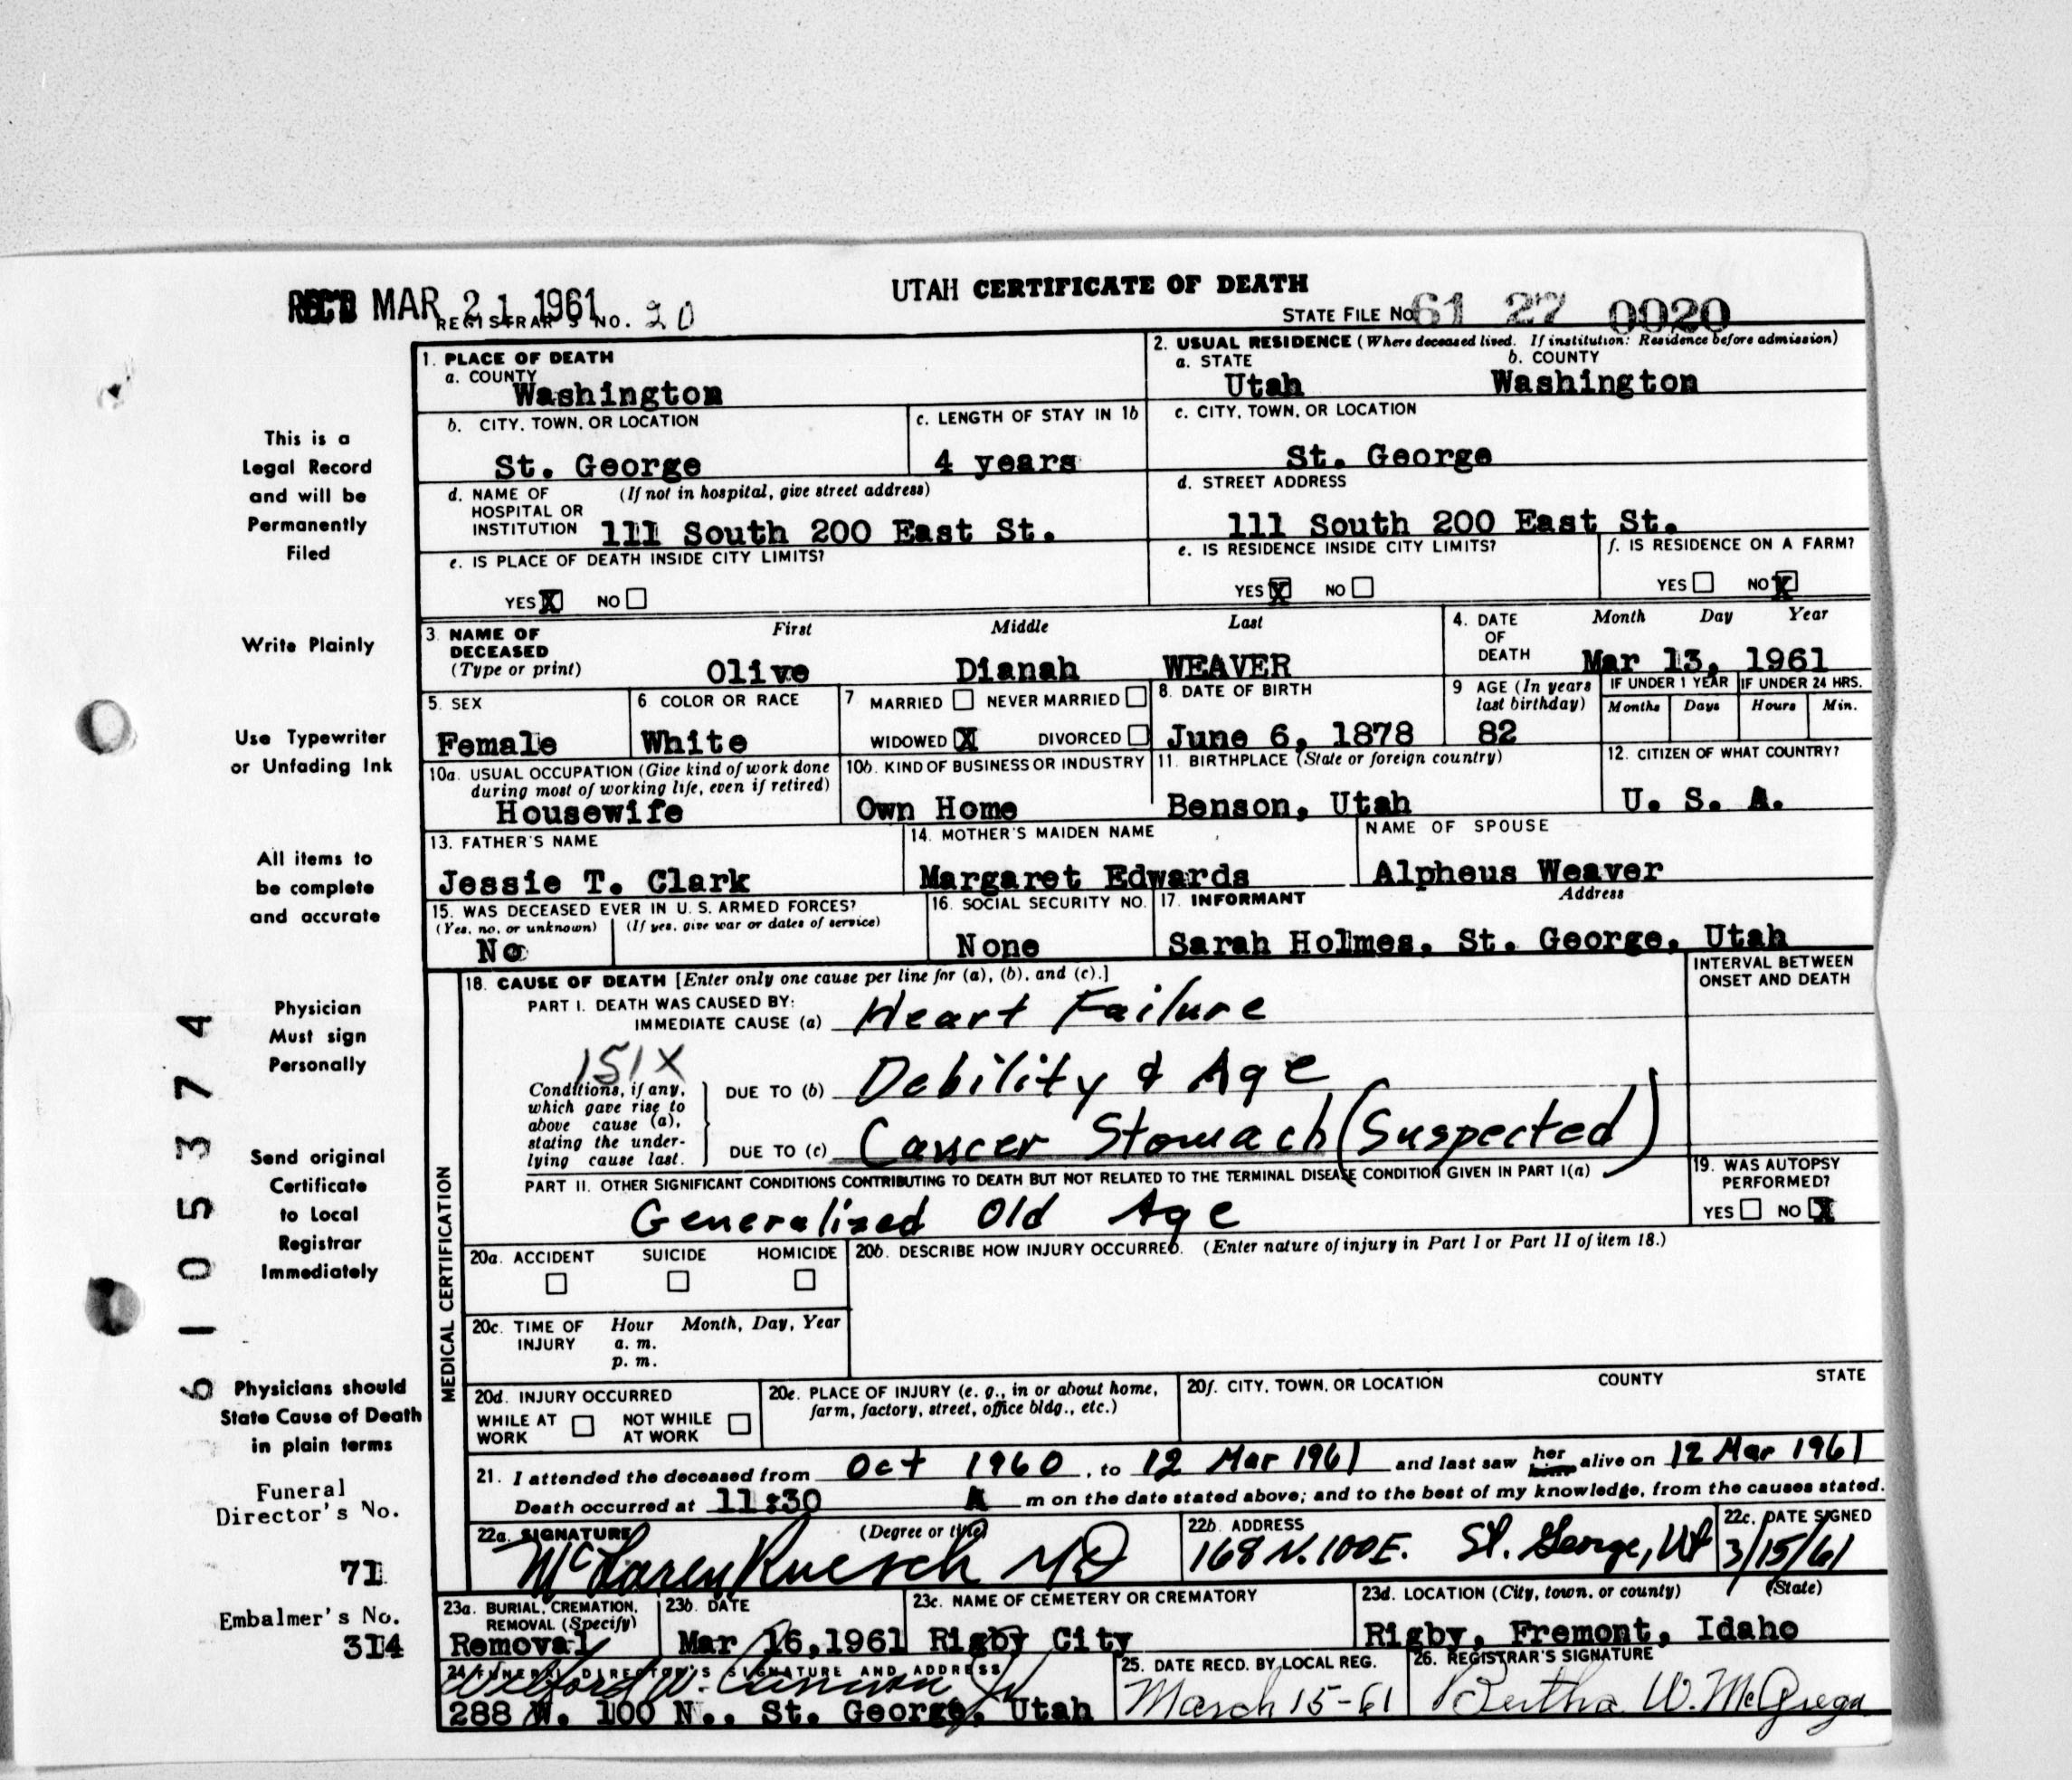 UTAH CERTIFICATE OF DEATH
REC'D MAR 21 1961
REGISTRAR'S NO. 20
STATE FILE NO. 61 27 0020
1. PLACE OF DEATH
a. COUNTY
Washington
2. USUAL RESIDENCE (Where deceased lived. If institution: Residence before admission)
a. STATE
b. COUNTY
Utah Washington
b. CITY, TOWN, OR LOCATION
St. George
c. LENGTH OF STAY IN 1b
4 years
c. CITY, TOWN, OR LOCATION
St. George
d. NAME OF (If not in hospital, give street address)
HOSPITAL OR
INSTITUTION 111 South 200 East St.
d. STREET ADDRESS
111 South 200 East St.
e. IS PLACE OF DEATH INSIDE CITY LIMITS?
YES X NO
e. IS RESIDENCE INSIDE CITY LIMITS?
YES X NO
f. IS RESIDENCE ON A FARM?
YES NO X
3. NAME OF
DECEASED
(Type or print)
First Middle Last
Olive Dianah WEAVER
4. DATE
OF
DEATH
Month Day Year
Mar 13, 1961
5. SEX
Female
6 COLOR OR RACE
White
7 MARRIED NEVER MARRIED
WIDOWED X DIVORCED
8. DATE OF BIRTH
June 6, 1878
9 AGE (In years
last birthday)
82
IF UNDER 1 YEAR
Months Days
IF UNDER 24 HRS.
Hours Min.
10a. USUAL OCCUPATION (Give kind of work done
during most of working life, even if retired)
Housewife
10b. KIND OF BUSINESS OR INDUSTRY
Own Home
11. BIRTHPLACE (State or foreign country)
Benson, Utah
12. CITIZEN OF WHAT COUNTRY?
U. S. A.
13. FATHER'S NAME
Jessie T. Clark
14. MOTHER'S MAIDEN NAME
Margaret Edwards
NAME OF SPOUSE
Alpheus Weaver
15. WAS DECEASED EVER IN U. S. ARMED FORCES?
(Yes, no, or unknown) (If yes, give war or dates of service)
No
16. SOCIAL SECURITY NO.
None
17. INFORMANT Address
Sarah Holmes, St. George, Utah
MEDICAL CERTIFICATION
18. CAUSE OF DEATH [Enter only one cause per line for (a), (b), and (c).]
INTERVAL BETWEEN
ONSET AND DEATH
PART I. DEATH WAS CAUSED BY:
IMMEDIATE CAUSE (a) Heart Failure
151X
Conditions, if any,
which gave rise to
above cause (a),
stating the under-
lying cause last.
DUE TO (b) Debility & Age
DUE TO (c) Cancer Stomach (Suspected)
PART II. OTHER SIGNIFICANT CONDITIONS CONTRIBUTING TO DEATH BUT NOT RELATED TO THE TERMINAL DISEASE CONDITION GIVEN IN PART I(a)
Generalized Old Age
19. WAS AUTOPSY
PERFORMED?
YES NO X
20a. ACCIDENT SUICIDE HOMICIDE
20b. DESCRIBE HOW INJURY OCCURRED. (Enter nature of injury in Part I or Part II of item 18.)
20c. TIME OF Hour Month, Day, Year
INJURY a. m.
p. m.
20d. INJURY OCCURRED
WHILE AT NOT WHILE
WORK AT WORK
20e. PLACE OF INJURY (e. g., in or about home,
farm, factory, street, office bldg., etc.)
20f. CITY, TOWN, OR LOCATION COUNTY STATE
21. I attended the deceased from Oct 1960, to 12 Mar 1961 and last saw her him alive on 12 Mar 1961
Death occurred at 11:30 A m on the date stated above; and to the best of my knowledge, from the causes stated.
22a. SIGNATURE (Degree or title)
McLaren Ruesch MD
22b. ADDRESS
168 N. 100 E. St. George, Ut
22c. DATE SIGNED
3/15/61
23a. BURIAL, CREMATION,
REMOVAL (Specify)
Removal
23b. DATE
Mar 16, 1961
23c. NAME OF CEMETERY OR CREMATORY
Rigby City
23d. LOCATION (City, town, or county) (State)
Rigby, Fremont, Idaho
24 FUNERAL DIRECTOR'S SIGNATURE AND ADDRESS
288 W. 100 N., St. George, Utah
25. DATE RECD. BY LOCAL REG.
March 15-61
26. REGISTRAR'S SIGNATURE
Bertha W. McGregor
This is a
Legal Record
and will be
Permanently
Filed
Write Plainly
Use Typewriter
or Unfading Ink
All items to
be complete
and accurate
Physician
Must sign
Personally
Send original
Certificate
to Local
Registrar
Immediately
Physicians should
State Cause of Death
in plain terms
Funeral
Director's No.
71
Embalmer's No.
314
6 1 0 5 3 7 4